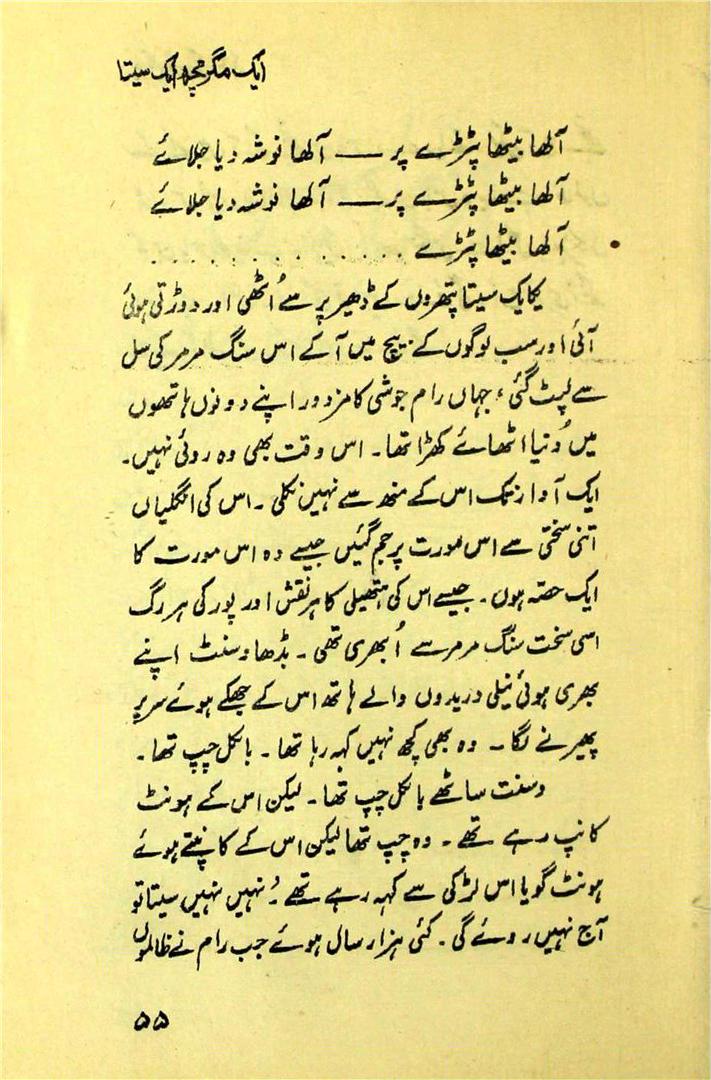 ایک مگرمچھ ایک سیتا
آلھا بیٹھا پٹڑے پر ــــ آلھا نوشہ دیا جلائے
آلھا بیٹھا پٹڑے پر ــــ آلھا نوشہ دیا جلائے
آلھا بیٹھا پٹڑے . . . . . . . . . . . . .
یکایک سیتا پتھروں کے ڈھیر پر سے اُٹھی اور دوڑتی ہوئی
آئی اور سب لوگوں کے بیچ میں آ کے اس سنگ مرمر کی سل
سے لپٹ گئی، جہاں رام جوشی کا مزدور اپنے دونوں ہاتھوں
میں دُنیا اٹھائے کھڑا تھا۔ اس وقت بھی وہ روئی نہیں۔
ایک آواز تک اس کے منھ سے نہیں نکلی ۔ اس کی انگلیاں
اتنی سختی سے اس مورت پر جم گئیں جیسے وہ اس مورت کا
ایک حصہ ہوں ۔ جیسے اس کی ہتھیلی کا ہر نقش اور پور کی ہر رگ
اسی سخت سنگ مرمر سے اُبھری تھی ۔ بڈھا وسنٹ اپنے
بھری ہوئی نیلی دریدوں والے ہاتھ اس کے جھکے ہوئے سر پر
پھیرنے لگا ۔ وہ بھی کچھ نہیں کہہ رہا تھا ۔ بالکل چپ تھا ۔
وسنت ساٹھے بالکل چپ تھا ۔ لیکن اس کے ہونٹ
کانپ رہے تھے ۔ وہ چپ تھا لیکن اس کے کانپتے ہوئے
ہونٹ گویا اس لڑکی سے کہہ رہے تھے ُنہیں نہیں سیتا تو
آج نہیں روئے گی ۔ کئی ہزار سال ہوئے جب رام نے ظالموں
۵۵